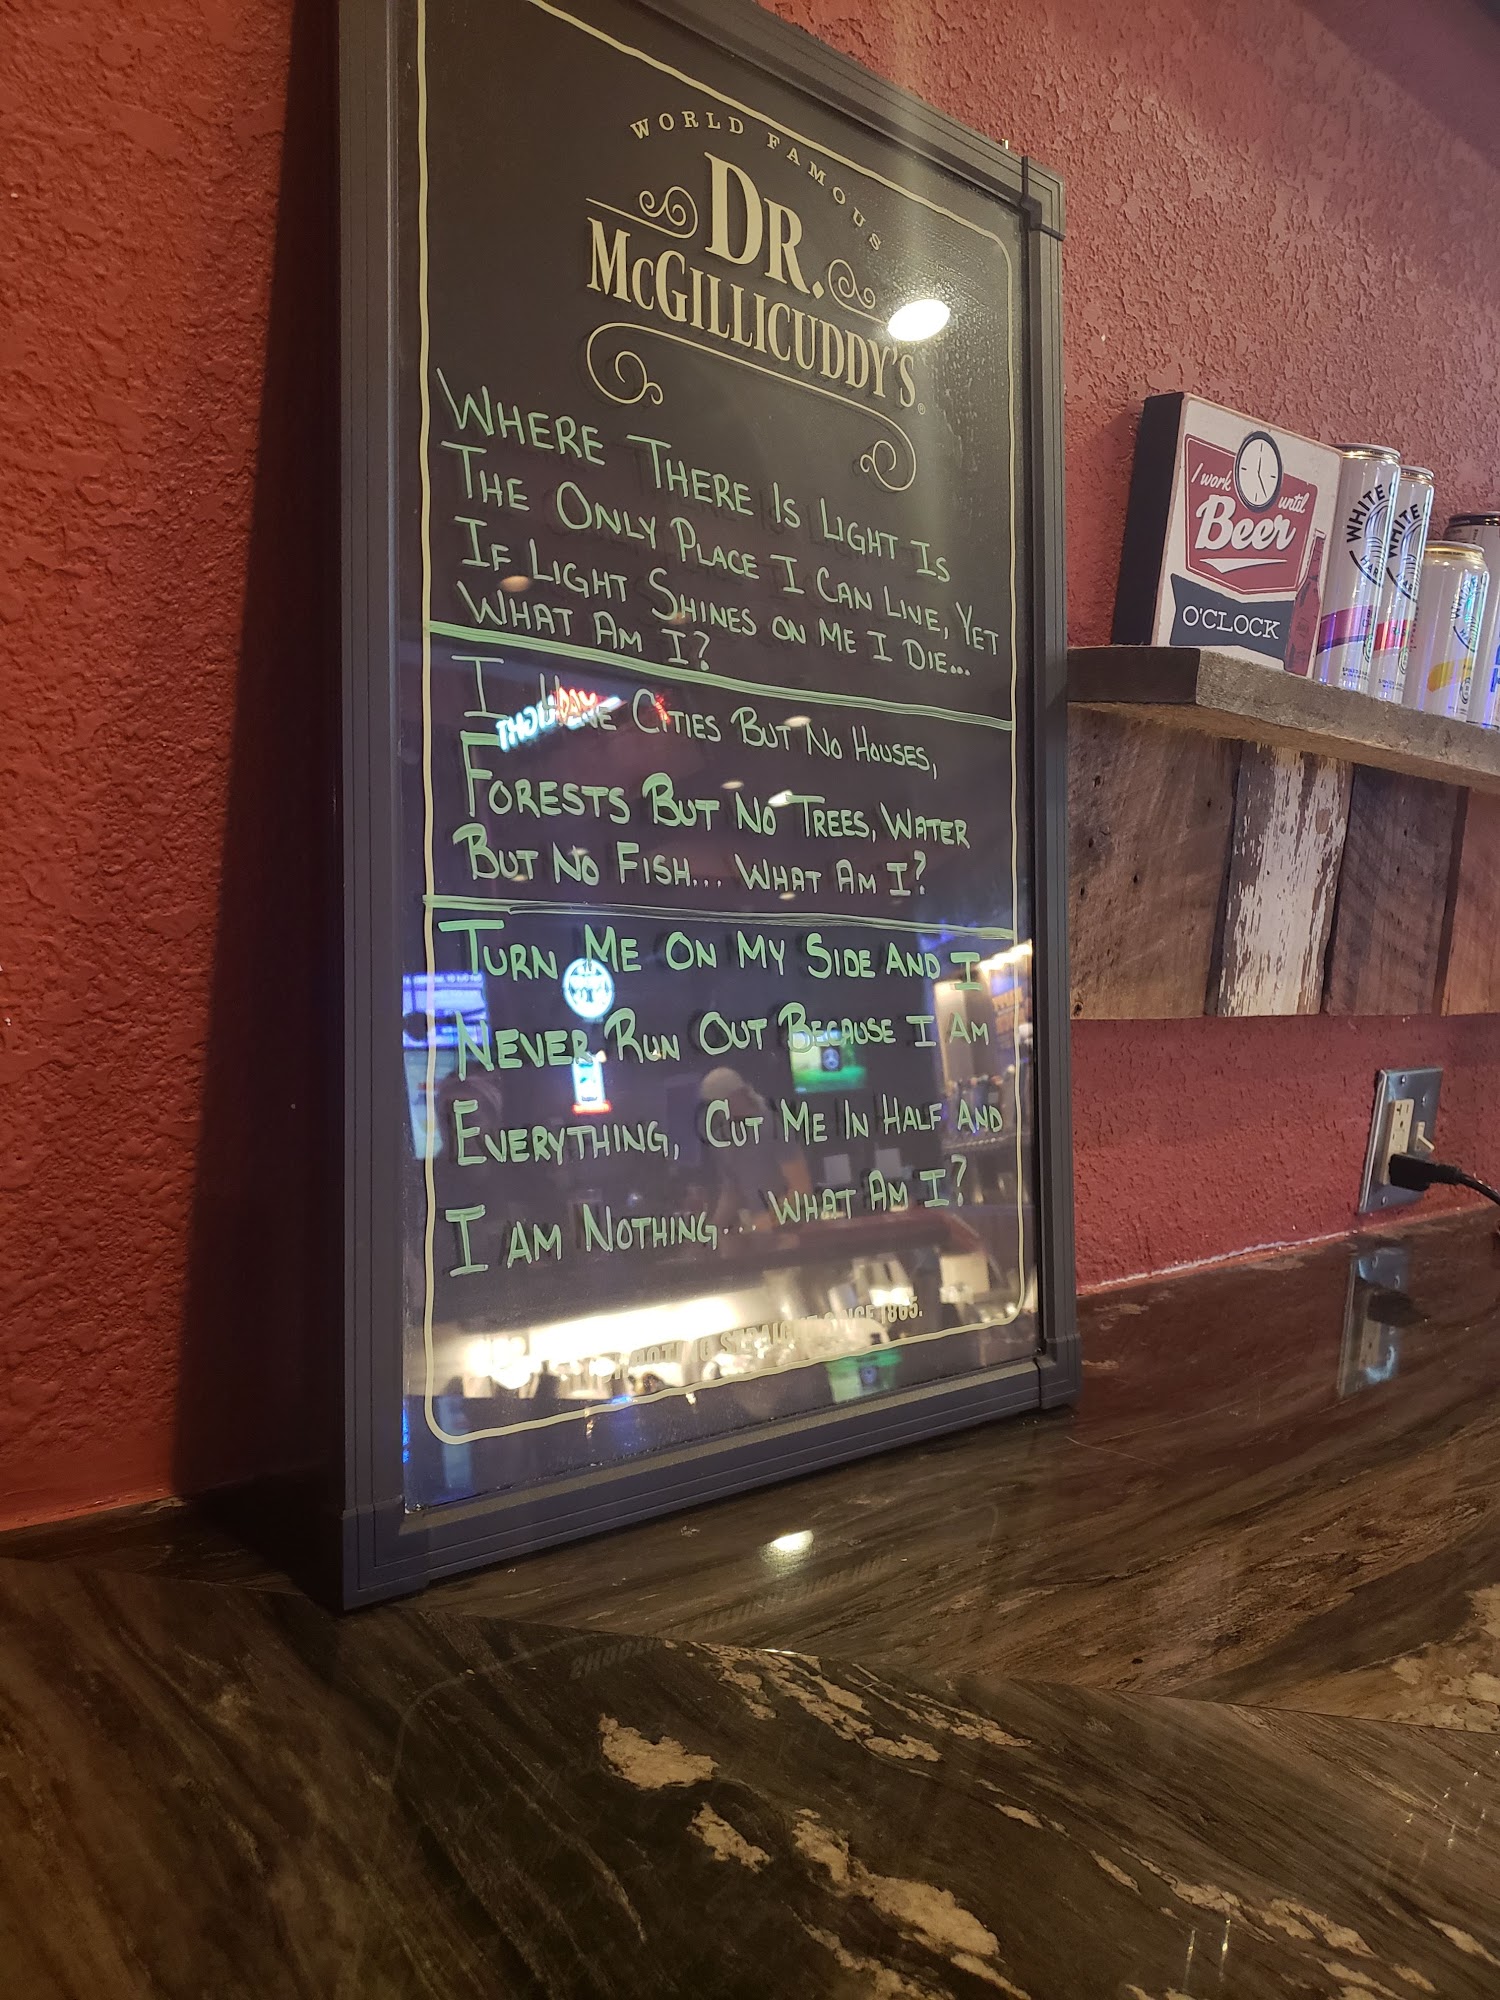 WORLD FAMOUS
DR.
McGILLICUDDY'S®
WHERE THERE IS LIGHT IS
THE ONLY PLACE I CAN LIVE, YET
IF LIGHT SHINES ON ME I DIE...
WHAT AM I?
I HAVE CITIES BUT NO HOUSES,
FORESTS BUT NO TREES, WATER
BUT NO FISH... WHAT AM I?
TURN ME ON MY SIDE AND I
NEVER RUN OUT BECAUSE I AM
EVERYTHING, CUT ME IN HALF AND
I AM NOTHING... WHAT AM I?
SINCE 1865.
I work until
Beer
O'CLOCK
WHITE
WHITE